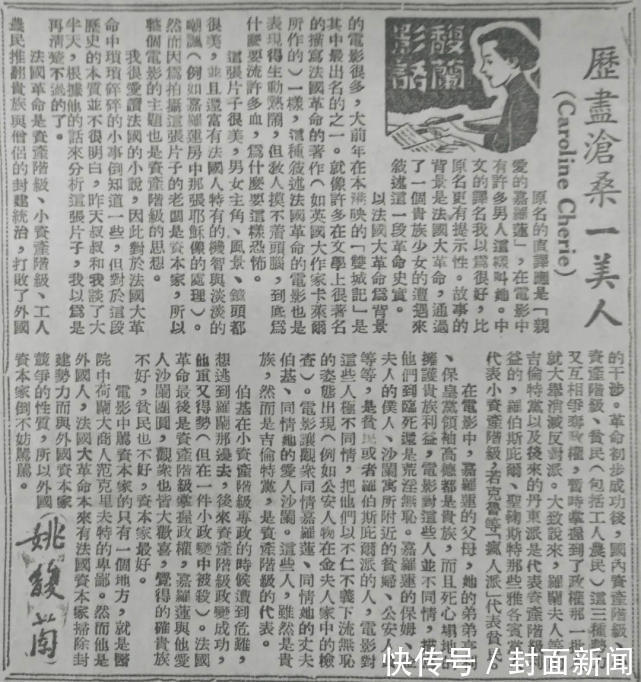 歷盡滄桑一美人
(Caroline Cherie)
馥蘭影語
原名的直譯應是「親
愛的嘉羅蓮」,在電影中
有許多男人這樣叫她。中
文的譯名我以為很好,比
原名更有提示性。故事的
背景是法國大革命,通過
了一個貴族少女的遭遇來
敘述這一段革命史實。
以法國大革命為背景
的電影很多,大前年在本港映的「雙城記」是
其中最出名的之一。就像許多在文學上很著名
的描寫法國革命的著作(如英國大作家卡萊爾
所作的)一樣,這種敘述法國革命的電影也是
表現得生動熱鬧,但教人摸不着頭腦,到底為
什麼要流許多血,為什麼要這樣恐怖。
這張片子很美,男女主角、風景、鏡頭都
很美,並且還富有法國人特有的機智與淡淡的
嘲諷(例如嘉羅蓮房中那張耶穌像的處理)。
然而因為拍攝這張片子的老闆是資本家,所以
整個電影的主題也是資產階級的思想。
我很愛讀法國的小說,因此對於法國大革
命中瑣瑣碎碎的小事倒知道一些,但對於這段
歷史的本質並不很明白,昨天叔叔和我談了大
半天,根據他的話來分析這張片子,我以為是
再清楚不過的了。
法國革命是資產階級、小資產階級、工人
農民推翻貴族與僧侶的封建統治,打敗了外國
的干涉。革命初步成功後,國內資產階級、小
資產階級、貧民(包括工人農民)這三種勢力
又互相爭奪政權,暫時掌握到了政權那一批
就大舉消滅反對派。大致說來,羅蘭夫人等
吉倫特黨以及後來的丹東派是代表資產階級利
益的,羅伯斯庇爾、聖鞠斯特那些雅各賓黨
代表小資產階級,若克魯等「瘋人派」代表貧民。
在電影中,嘉羅蓮的父母,她的弟弟亨
、保皇黨領袖高德都是貴族,而且死心塌地的
擁護貴族利益,電影對這些人並不同情,描寫
他們到臨死還是荒淫無恥。嘉羅蓮的保姆、
夫人的僕人、沙蘭寓所附近的貧婦、公安人
等等,是貧民或者羅伯斯庇爾派的人,電影對
這些人極不同情,把他們以不仁不義下流無恥
的姿態出現(例如公安人物在金夫人家中的檢
查)。電影讓觀衆同情嘉羅蓮、同情她的丈夫
伯基、同情她的愛人沙蘭。這些人,雖然是貴
族,然而是吉倫特黨,是資產階級的代表。
伯基在小資產階級專政的時候遭到危難,
想逃到羅蘭那邊去,後來資產階級政變成功,
他重又得勢(但在一件小政變中被殺)。法國
革命最後是資產階級掌握政權,嘉羅蓮與他愛
人沙蘭團圓,觀衆也皆大歡喜,覺得的確貴族
不好,貧民也不好,資本家最好。
電影中罵資本家的只有一個地方,就是醫
院中荷蘭大商人范克里夫特的卑鄙。然而他是
外國人,法國大革命本來有法國資本家掃除封
建勢力而與外國資本家
競爭的性質,所以外國
資本家倒不妨罵罵。
姚馥蘭
快传号/封面新闻